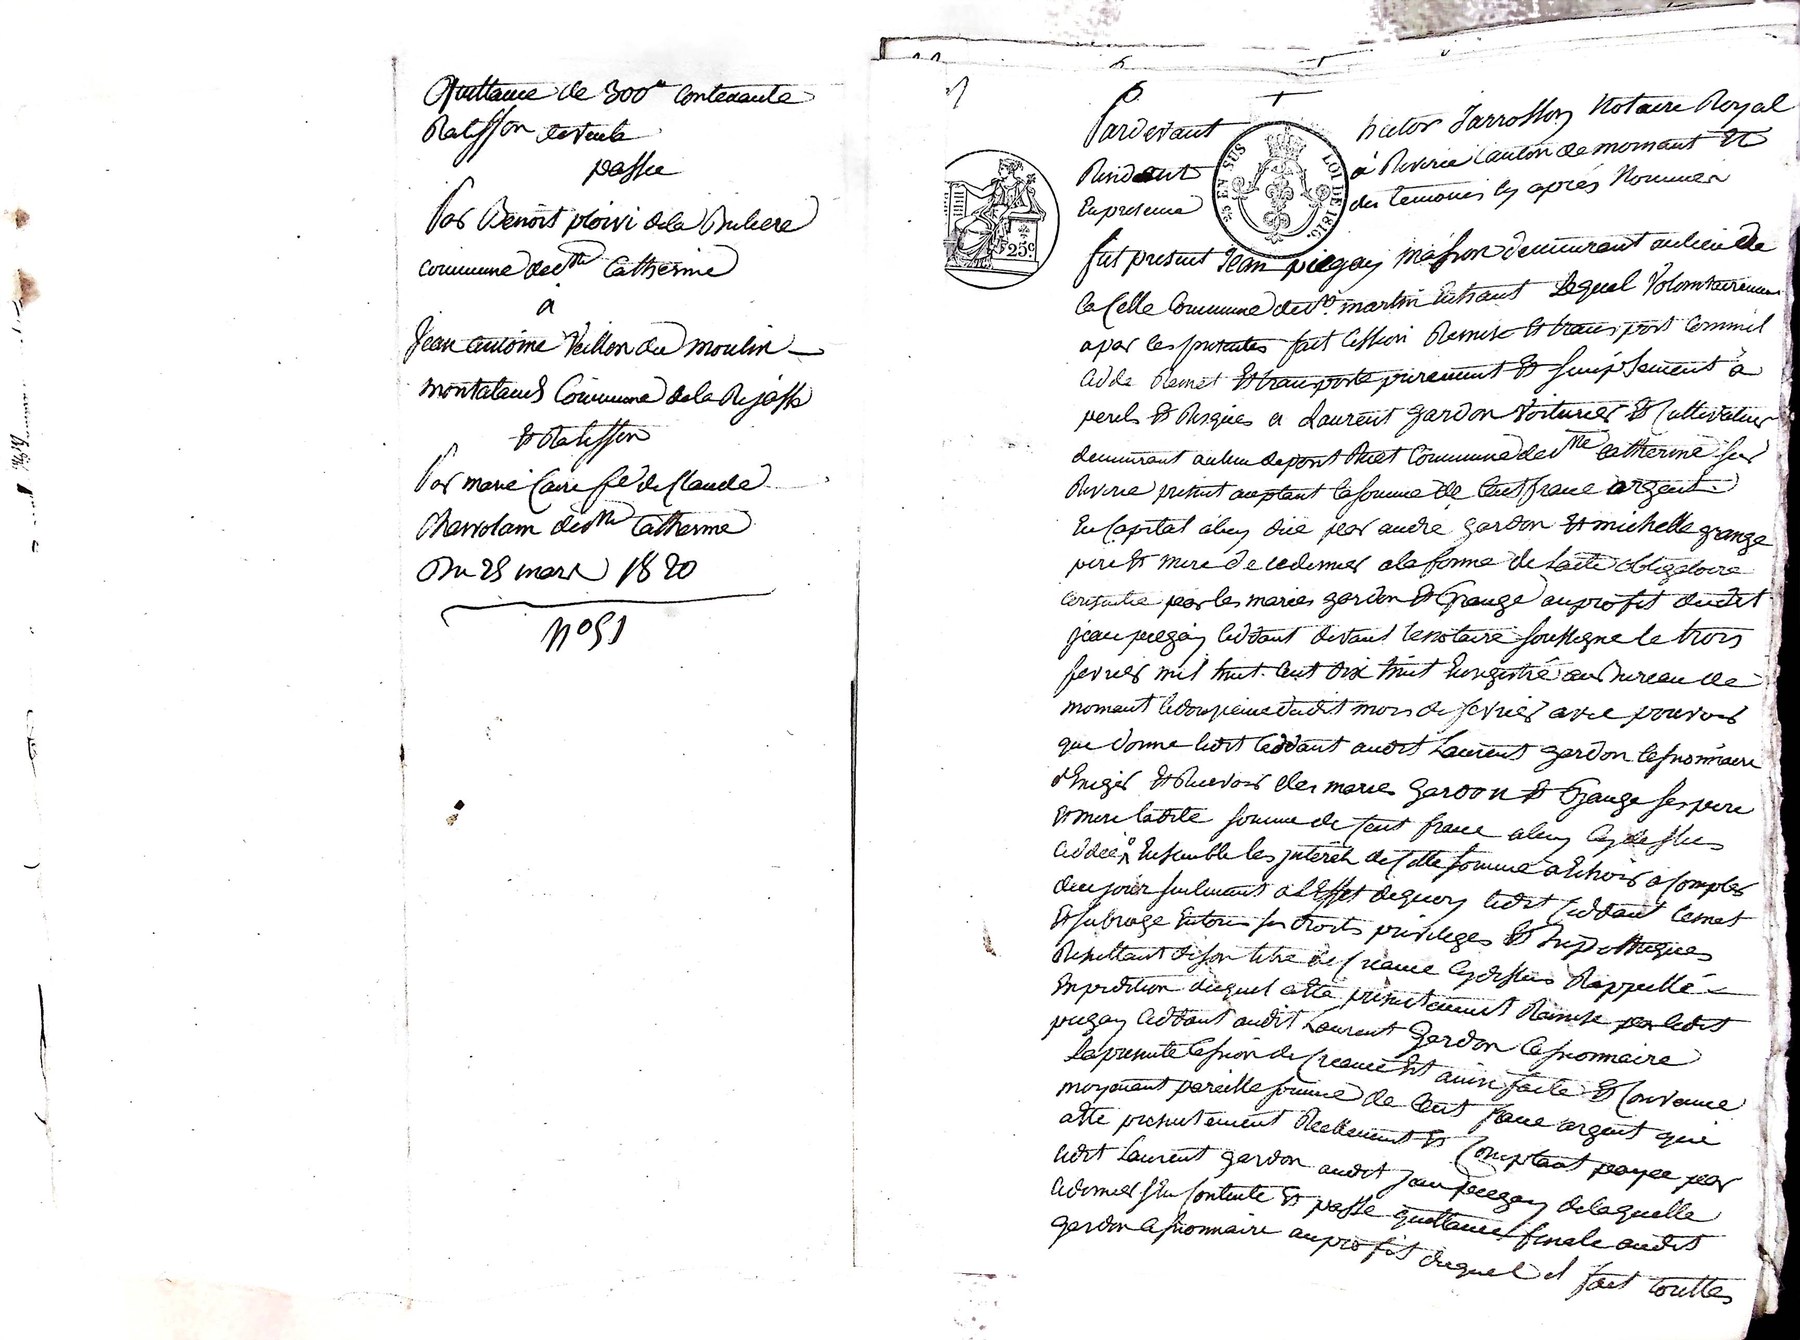 Quittance de 300# Contenante
Ratiffon de vente
passée
Par Benoit ploivi de la Bruliere
commune de Ste Catherine
à
Jean antoine Veillon du moulin
montaland Commune de la Rajasse
Et Ratiffon
Par marie Claire fe de Claude
de Ste Catherine
Du 25 mars 1820
N° 51
Pardevant hictor Jarrosson Notaire Royal
Residant à Riverie Canton de mornant Et
En presence des temoins cy après Nommés
EN SUS
LOI DE 1816.
25 c.
fut present Jean piegay masson demeurant au lieu de
la Celle Commune de St. martin Lequel Volontairement
a par les presentes fait Cession Remise Et transport Comme il
cedde Remet Et transporte purement Et simplement à
perils Et Risques a Laurent gardon Voiturier Et Cultivateur
demeurant au lieu de pont Commune de Ste Catherine sur
Riverie present acceptant la somme de Cent franc argent
En Capital a luy düe par andré gardon Et michelle grange
pere Et mere de ce dernier a la forme de l'acte obligatoire
consentie par les maries gardon Et Grange au profit dudit
jean piegay Ceddant devant le notaire soussigne le trois
fevrier mil huit Cent dix huit Enregistré au Bureau de
mornant le douzieme dudit mois de fevrier avec pouvoir
que donne ledit Ceddant audit Laurent gardon Cessionnaire
d'Exiger Et Recevoir des maries Gardon Et Grange ses pere
Et mere ladite somme de Cent franc a luy cy dessus
Ceddée Ensemble les jnterêts de Cette somme a Echoir a Compter
de ce jour seulement a l'Effet de quoy ledit Ceddant le met
Et subroge En tous ses droits privileges Et hypotheques
Resultant de son titre de Creance cy dessus Rappellé
Expedition duquel a été presentement Remise par ledit
piegay Ceddant audit Laurent Gardon Cessionnaire
La presente Cession de Creance Est ainsi faite Et Convenue
moyenant pareille somme de Cent franc argent qui
a été presentement Reellement Et Comptant payée par
ledit Laurent gardon audit Jean piegay de laquelle
ce dernier s'En Contente Et passe quittance finale audit
gardon Cessionnaire au profit duquel il fait touttes